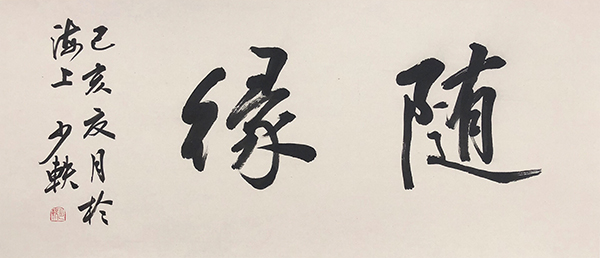 随缘
己亥夏月於
海上 少軼